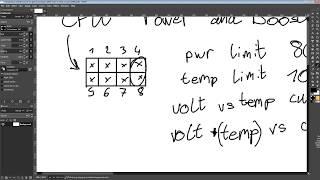 CPU Power and Boost
1 2 3 4
x x x x
x x x x
5 6 7 8
pwr limit 80
temp limit 10
volt vs temp cu
volt (temp) vs c